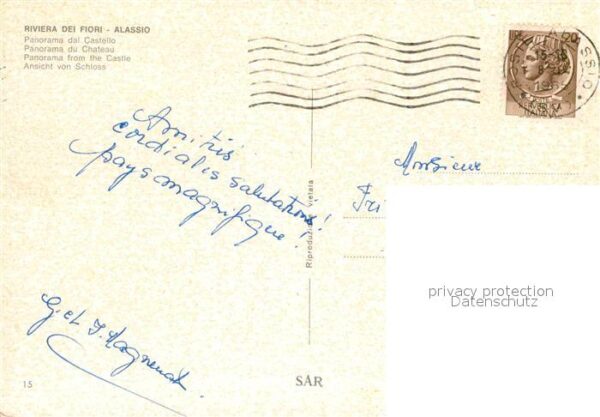 RIVIERA DEI FIORI - ALASSIO
Panorama dal Castello
Panorama du Chateau
Panorama from the Castle
Ansicht von Schloss
cordiales salutations!
pays magnifique!
G. et J.
15
Riproduzione vietata
SAR
Monsieur
Fri
privacy protection
Datenschutz